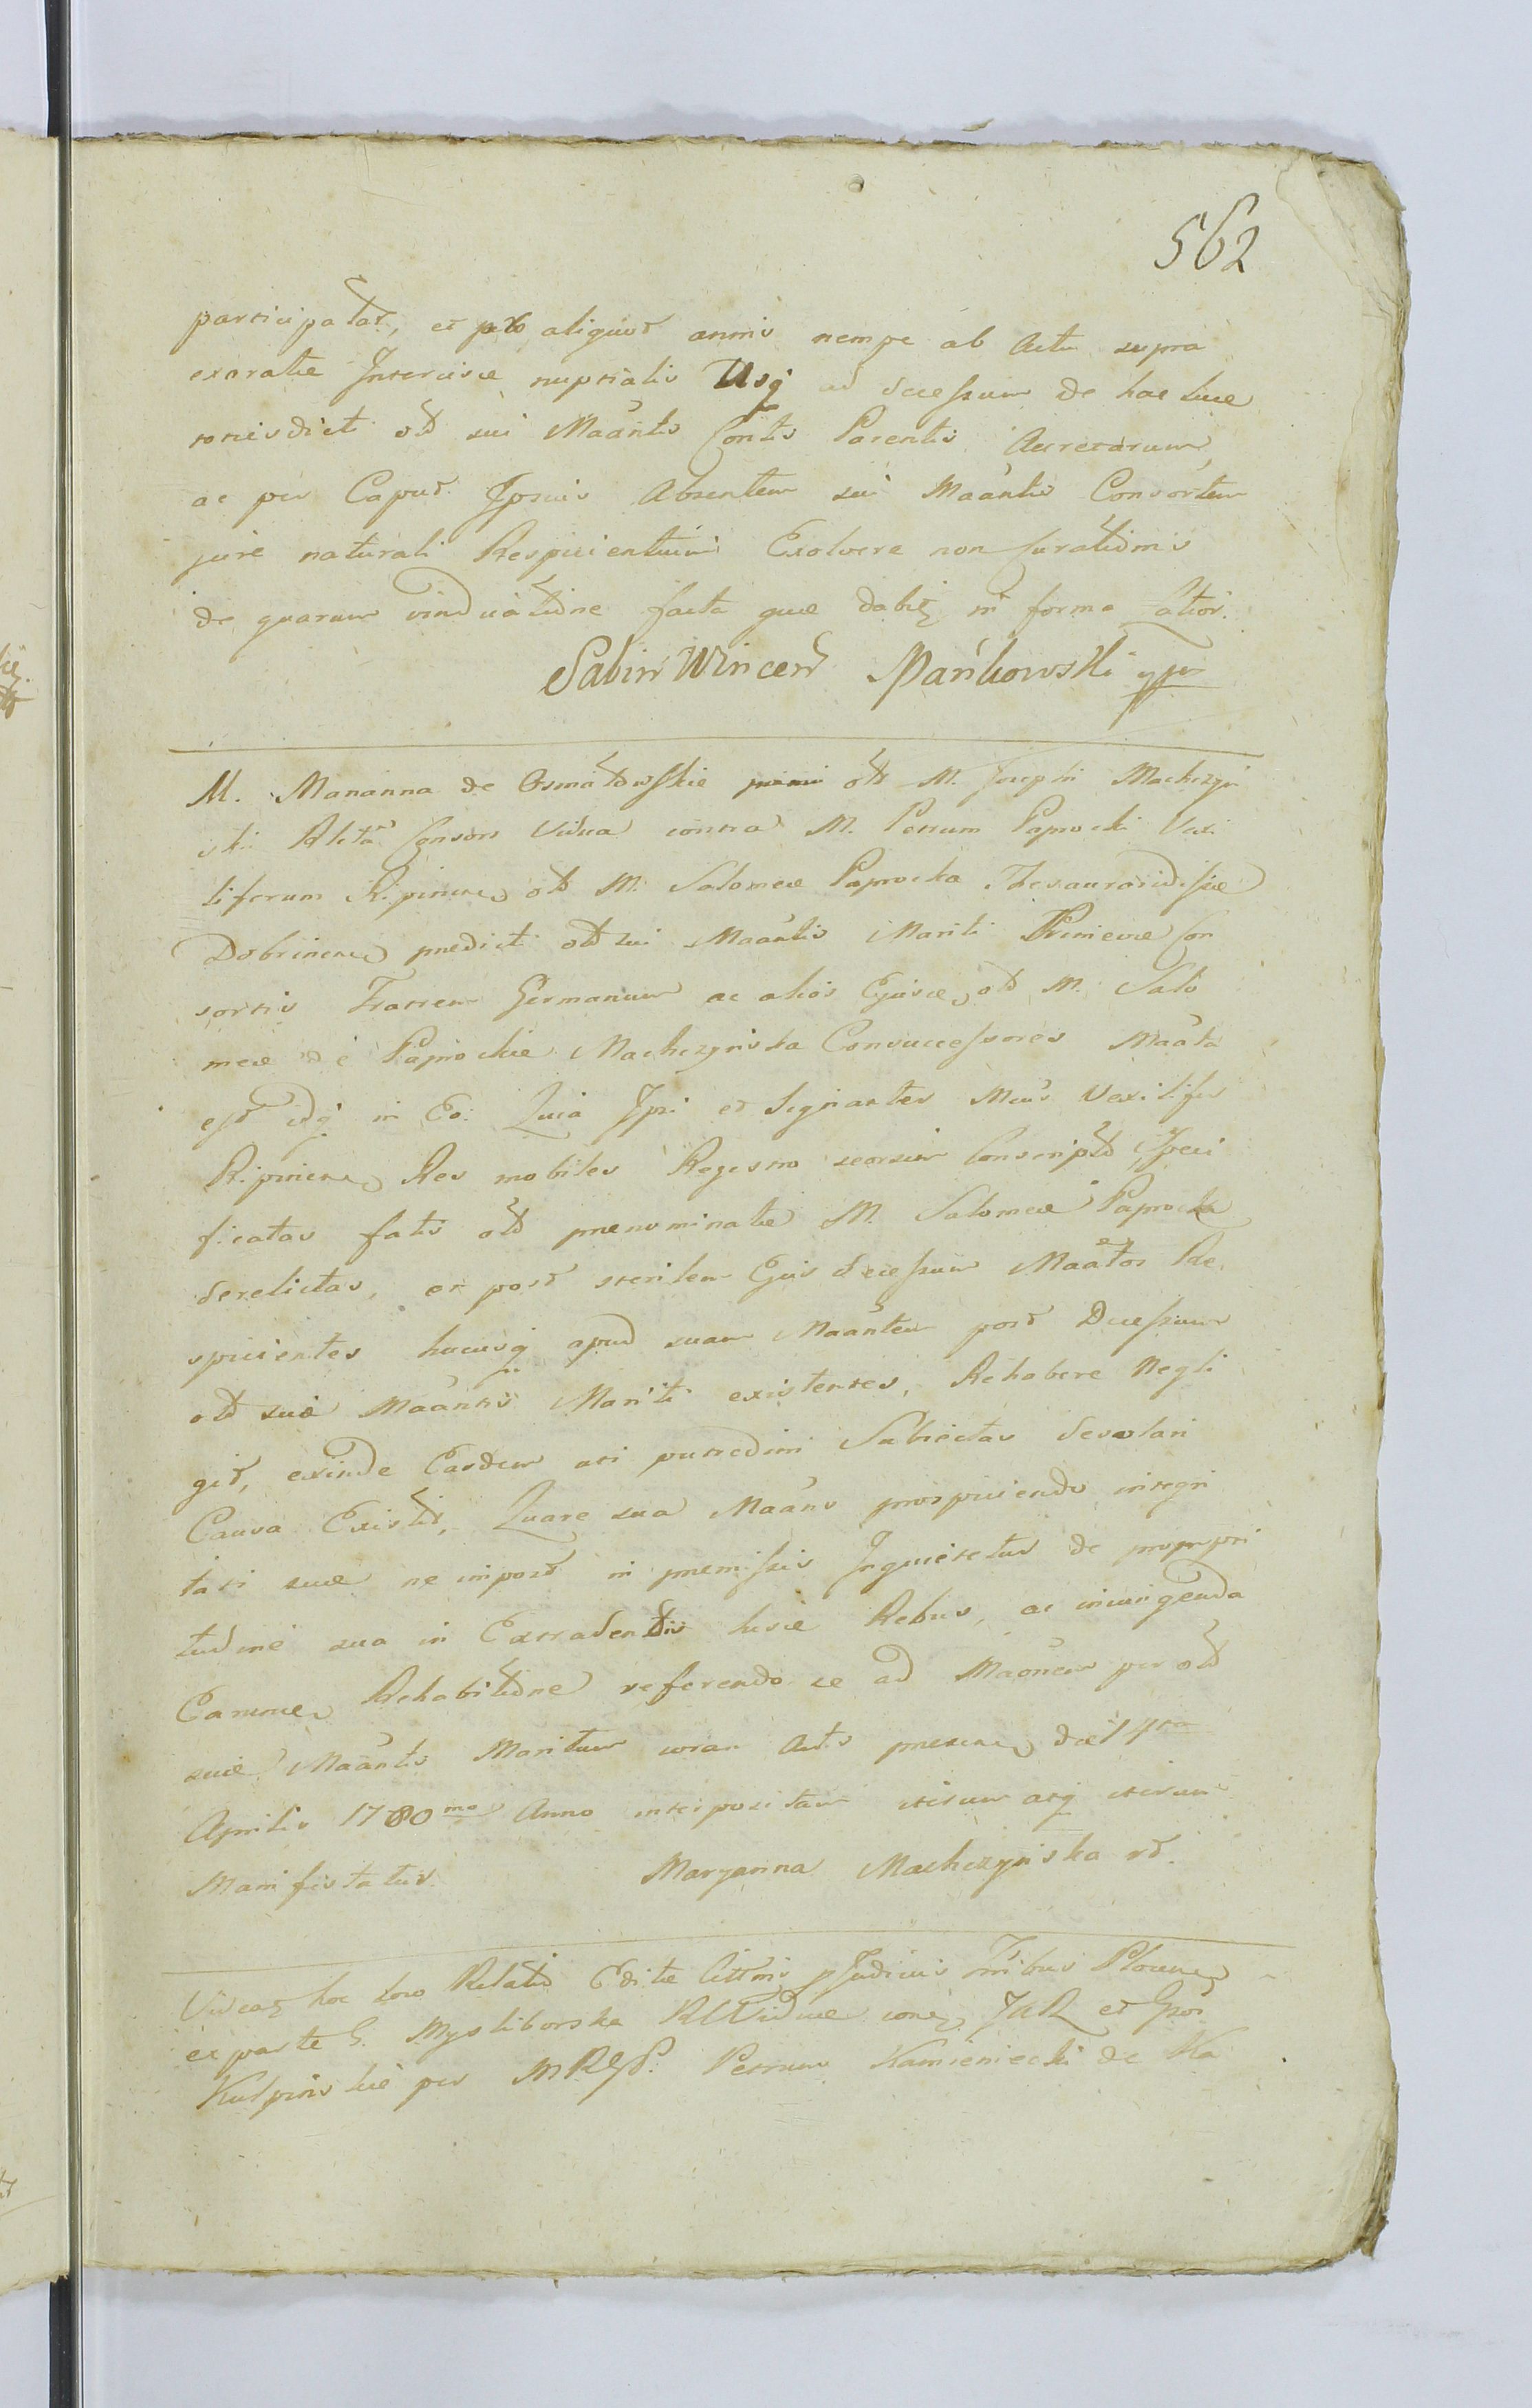 562
participatar, et pro aliquot annis nempe ab Actu supra
exaratæ Intercisæ nuptialis Usq ad decessum de hac Luce
toties dicti olt sui Maantis Contis Parentis Accretarum,
ac per Caput Ipsius Absentem sui Maantis Consortem
jure naturali Respicientium Exolvere non Curatidnis
de quarum vinducatidne facta quæ dabit in forma Latior.
Sabin Wincent Mańkowski mp
M. Marianna de Osmałowskie olt M. Josephi Machczyń
ski Relta Consors Vidua contra M. Petrum Paprocki Vexi
liferum Ripinen olt M. Salomeæ Paprocka Thesauraridissæ
Dobrinen prædicti olt sui Maantis Mariti Primævæ Con
sortis Fratrem Germanum ac alios Ejusce olt M. Salo
meæ de Paprockie Machczyńska Consuccessores Maata
est idq in Eo: Quia Ipsi et Signanter Mcus Vexilifer
Ripinen Res mobiles Regestro seorsim Conscripto Speci
ficatas fatæ olt prænominatæ M. Salomeæ Paprocka
derelictas, et post sterilem Ejus decessum Maatos Re
spicientes hucusq apud suam Maantem post Decessum
olt suæ Maantis Mariti existentes, Rehabere negli
git, exinde Easdem ati putredini Subiectas desolari
Causa Existit, Quare sua Maans prospiciendo integri
tati suæ ne impost in præmissis Inquietetur de promptri
tudine sua in Extradentis hisce Rebus, ac iniungenda
Earumce Rehabitidne referendo se ad Maonem per olt
suæ Maantis Maritum coram Actis præsen die 14ta
Aprilis 1780mo Anno interpositam iterum atq iterum
Manifestatur. Maryanna Machczyńska
Videat hoc loco Relatio Editæ Cittnis Judiciis Trribus Plocen
ex parte G. Mysliborska Rlt Viduæ con JAR et Gros
Kulpinskie per MRGP. Petrum Kamieniecki de Ka